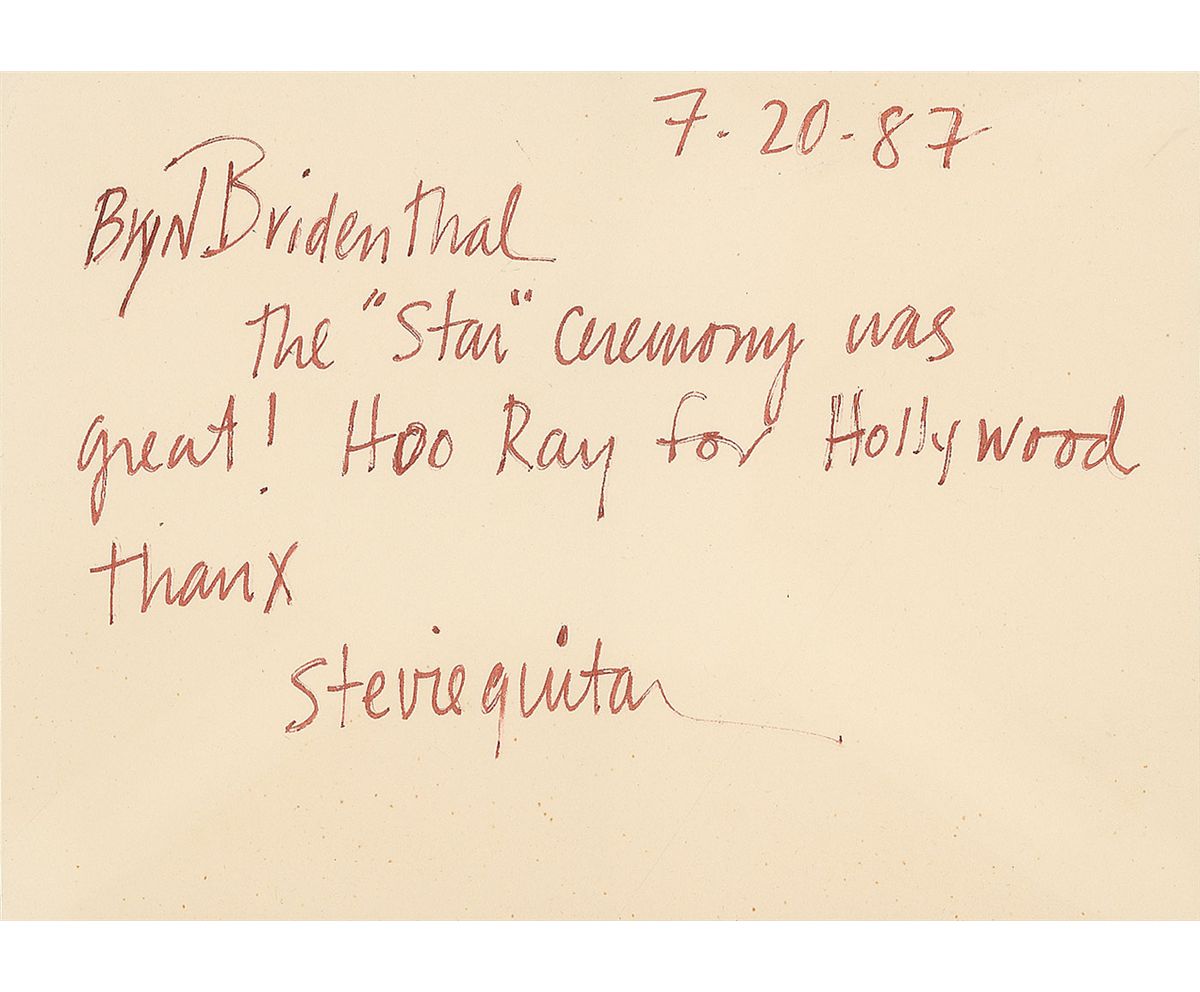 7-20-87
Bryn Bridenthal
The "Star" Ceremony was
great! Hoo Ray for Hollywood
thanx
Stevieguitar